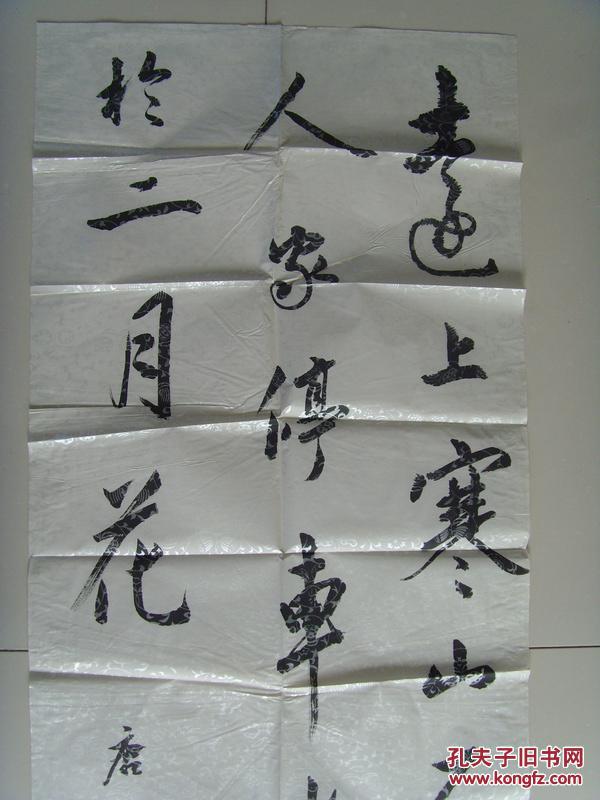 遠上寒山石
人家停車
於二月花
唐
孔夫子旧书网
www.kongfz.com